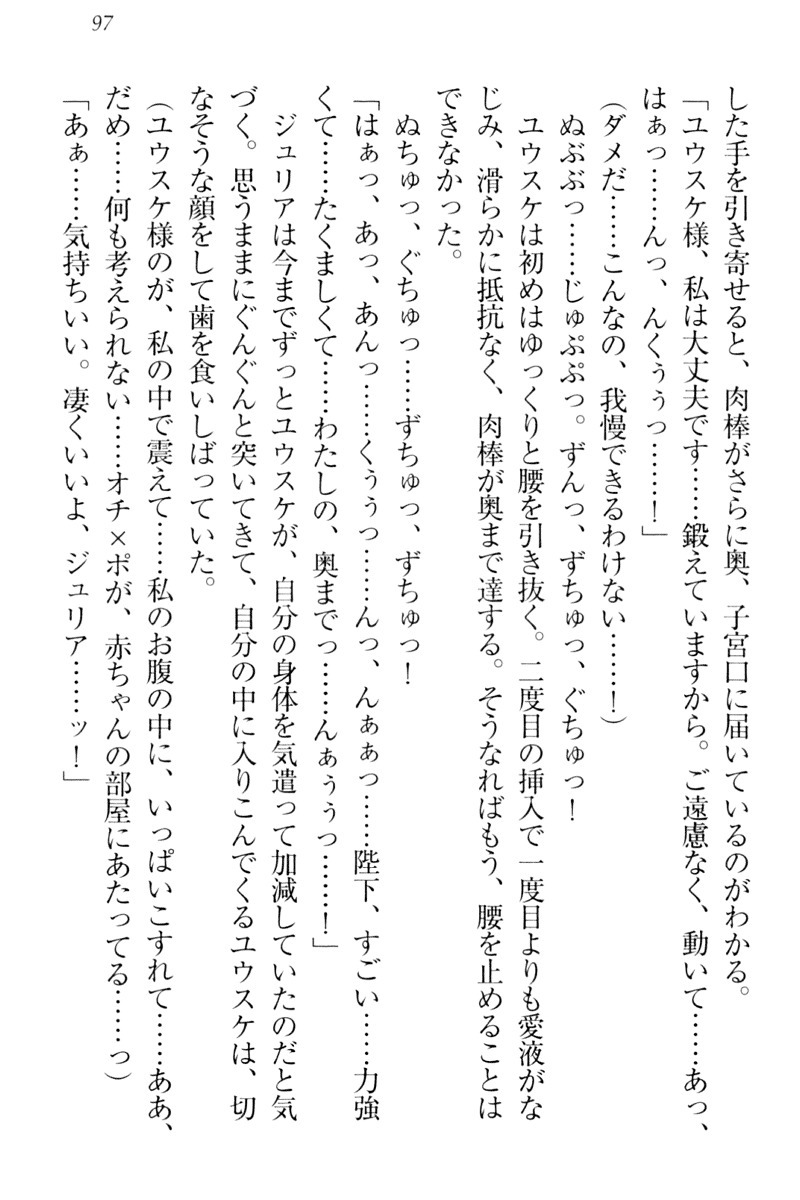 97
した手を引き寄せると、肉棒がさらに奥、子宮口に届いているのがわかる。
「ユウスケ様、私は大丈夫です……鍛えていますから。ご遠慮なく、動いて……あっ、
はぁっ……んっ、んくぅぅっ……！」
（ダメだ……こんなの、我慢できるわけない……！）
ぬぶぶっ……じゅぷぷっ。ずんっ、ずちゅっ、ぐちゅっ！
ユウスケは初めはゆっくりと腰を引き抜く。二度目の挿入で一度目よりも愛液がな
じみ、滑らかに抵抗なく、肉棒が奥まで達する。そうなればもう、腰を止めることは
できなかった。
ぬちゅっ、ぐちゅっ……ずちゅっ、ずちゅっ！
「はぁっ、あっ、あんっ……くぅぅっ……んっ、んぁぁっ……陛下、すごい……力強
くて……たくましくて……わたしの、奥までっ……んぁぅぅっ……！」
ジュリアは今までずっとユウスケが、自分の身体を気遣って加減していたのだと気
づく。思うままにぐんぐんと突いてきて、自分の中に入りこんでくるユウスケは、切
なそうな顔をして歯を食いしばっていた。
（ユウスケ様のが、私の中で震えて……私のお腹の中に、いっぱいこすれて……ああ、
だめ……何も考えられない……オチ×ポが、赤ちゃんの部屋にあたってる……っ）
「あぁ……気持ちいい。凄くいいよ、ジュリア……ッ！」